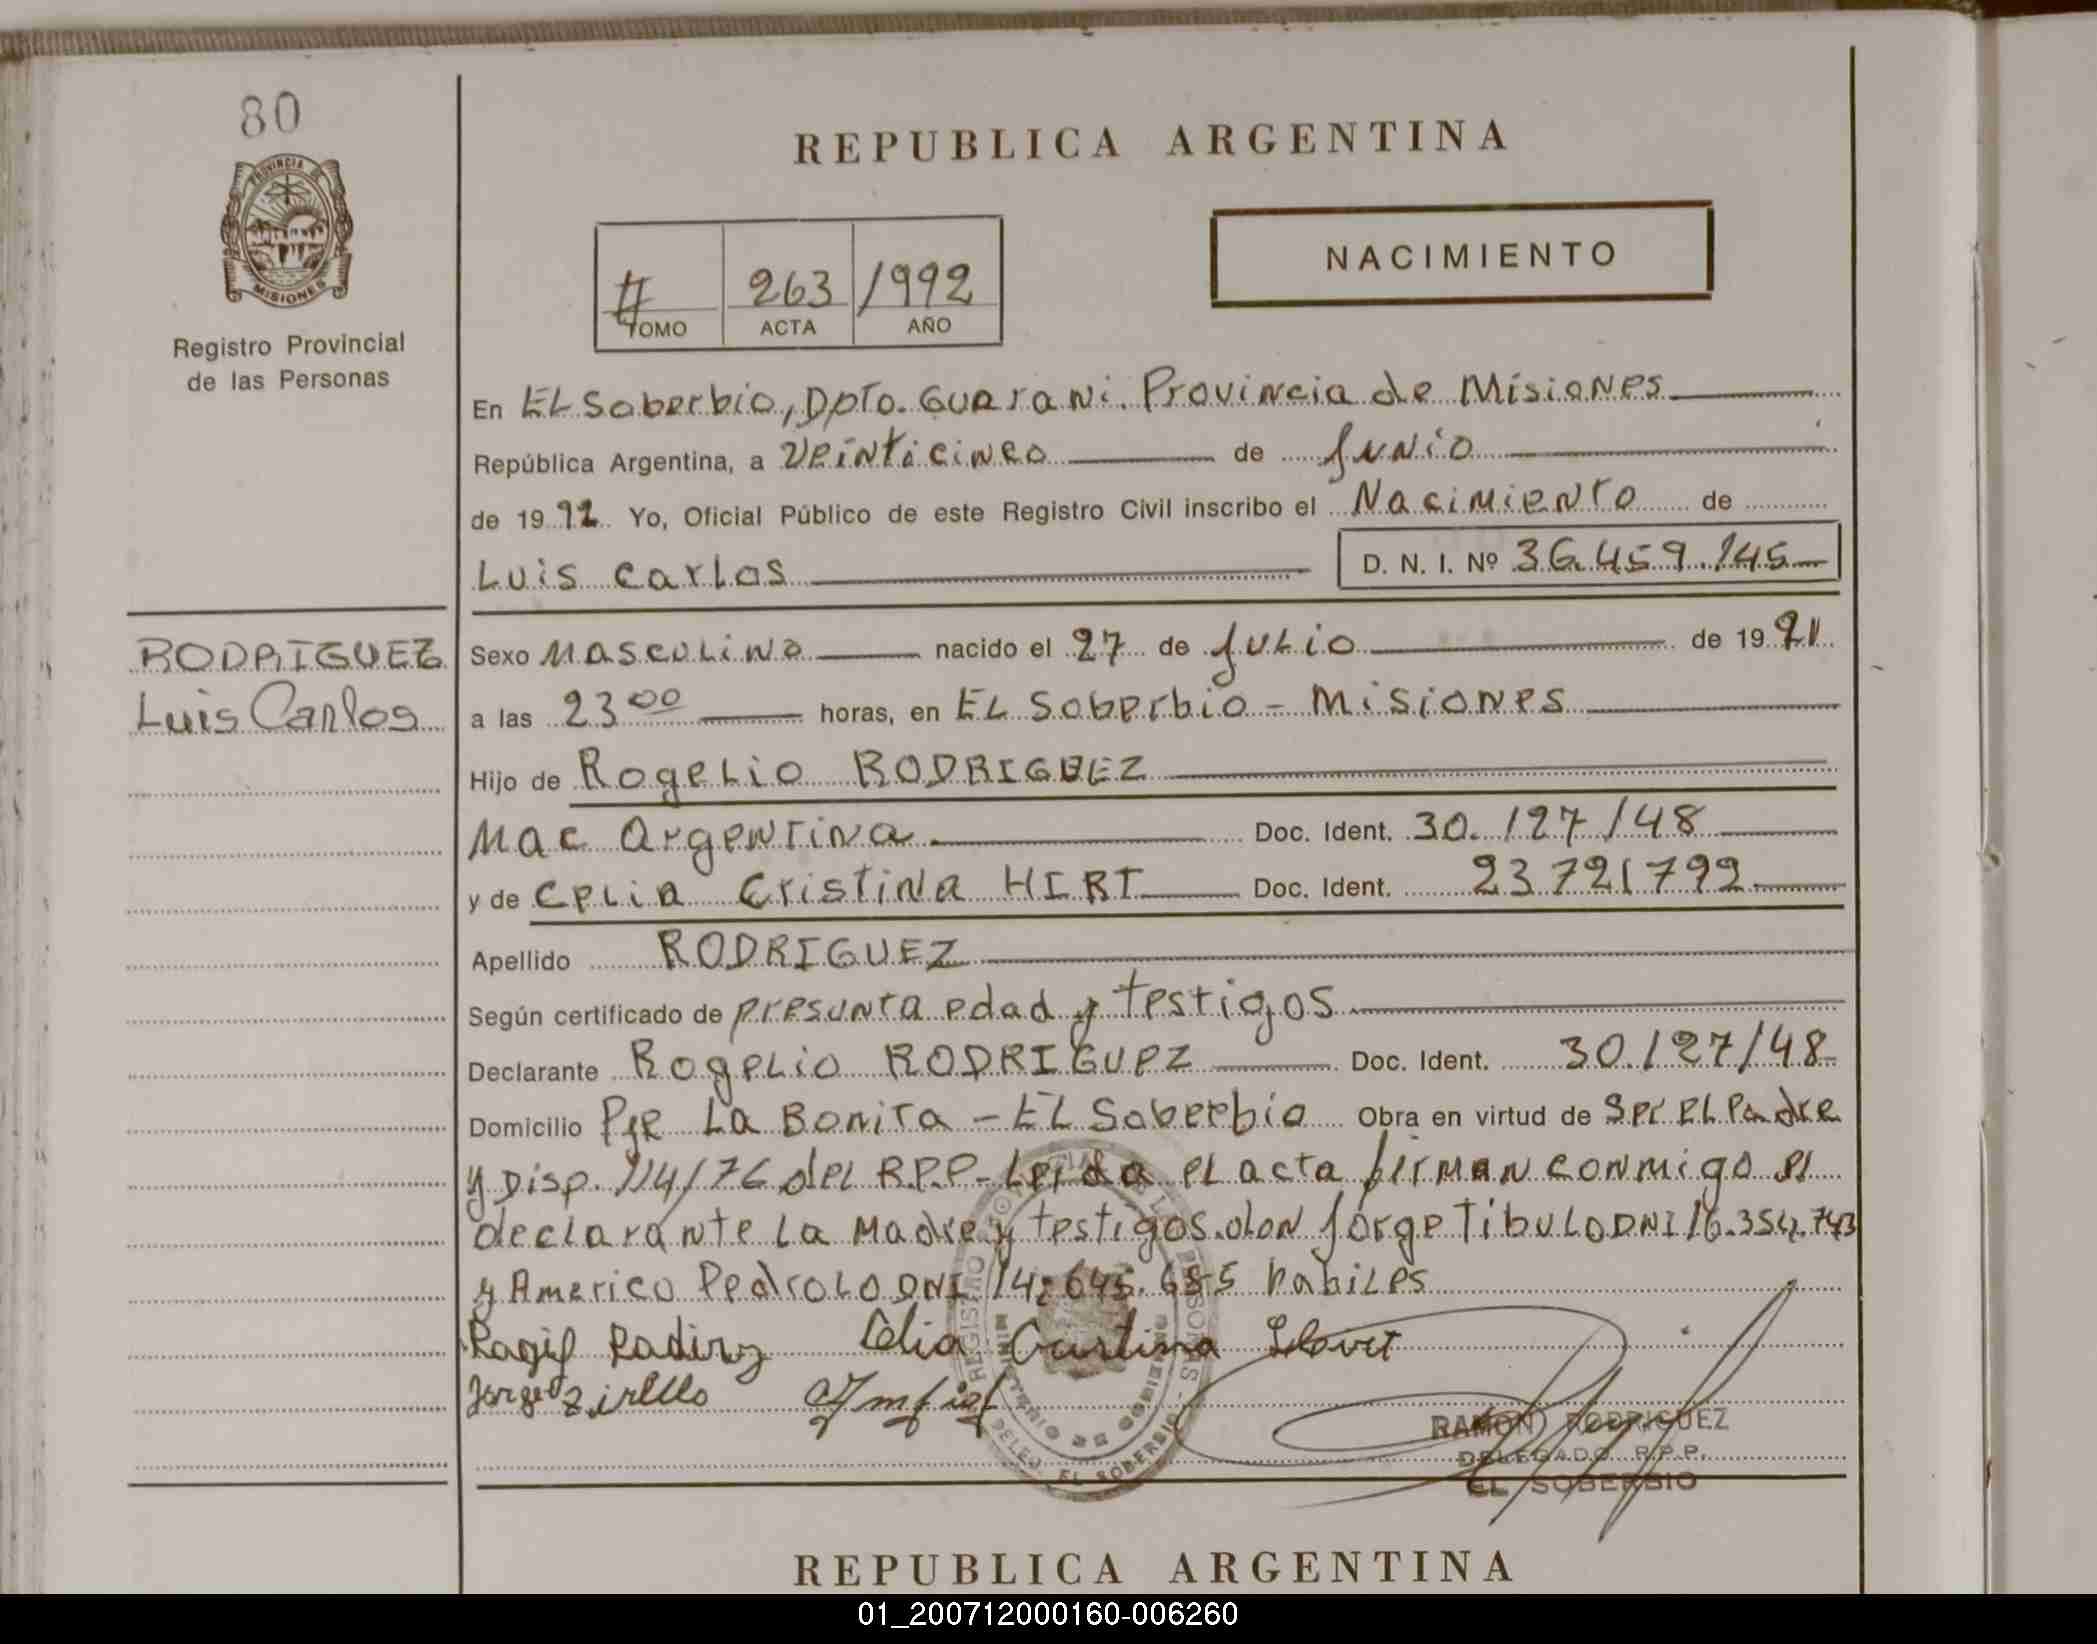 80
PROVINCIA DE
MISIONES
Registro Provincial
de las Personas
REPUBLICA ARGENTINA
NACIMIENTO
# 263 1992
TOMO ACTA AÑO
En EL Soberbio, Dpto. Guarani. Provincia de Misiones
República Argentina, a Veinticinco de Junio
de 1992 Yo, Oficial Público de este Registro Civil inscribo el Nacimiento de
Luis Carlos D. N. I. Nº 36.459.145
RODRIGUEZ
Luis Carlos
Sexo Masculino nacido el 27 de Julio de 1991
a las 23 00 horas, en EL Soberbio - Misiones
Hijo de Rogelio RODRIGUEZ
Nac Argentina Doc. Ident. 30.127148
y de Celia Cristina HIRT Doc. Ident. 23721792
Apellido RODRIGUEZ
Según certificado de presunta edad y testigos
Declarante Rogelio RODRIGUEZ Doc. Ident. 30.127148
Domicilio Pje La Bonita - EL Soberbio Obra en virtud de Ser EL Padre
y Disp. 114/76 del R.P.P- Leida el acta firman conmigo el
declarante La Madre y testigos don Jorge Tibulo DNI 16.354.743
y Americo Pedrolo DNI 14.645.685 habiles
Celia Cristina
Jorge
REGISTRO PROVINCIAL DE LAS PERSONAS -
MINISTERIO DE GOBIERNO
DELEG. EL SOBERBIO
RAMON RODRIGUEZ
DELEGADO R.P.P.
EL SOBERBIO
REPUBLICA ARGENTINA
01_200712000160-006260